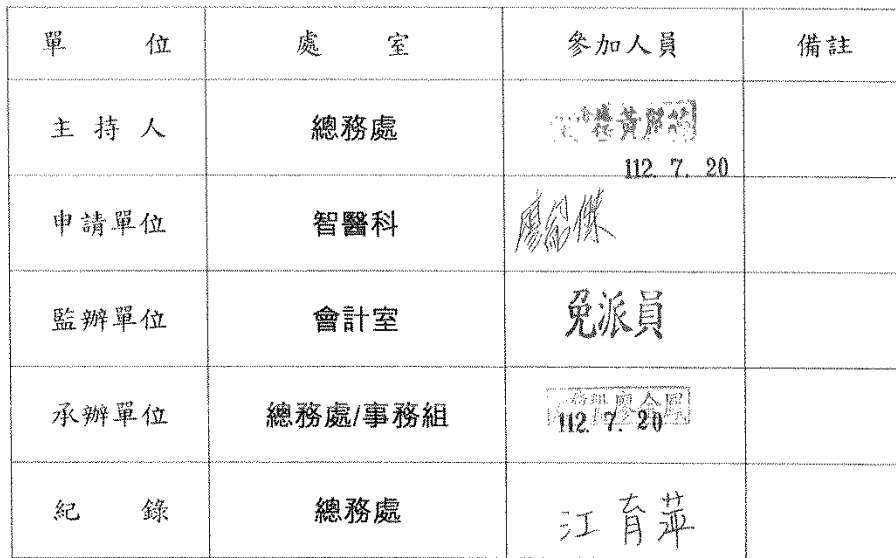 單 位 處 室 參加人員 備註
主 持 人 總務處 黃
112. 7. 20
申請單位 智醫科 廖
監辦單位 會計室 免派員
承辦單位 總務處/事務組 廖金鳳
112. 7. 20
紀 錄 總務處 江育萍